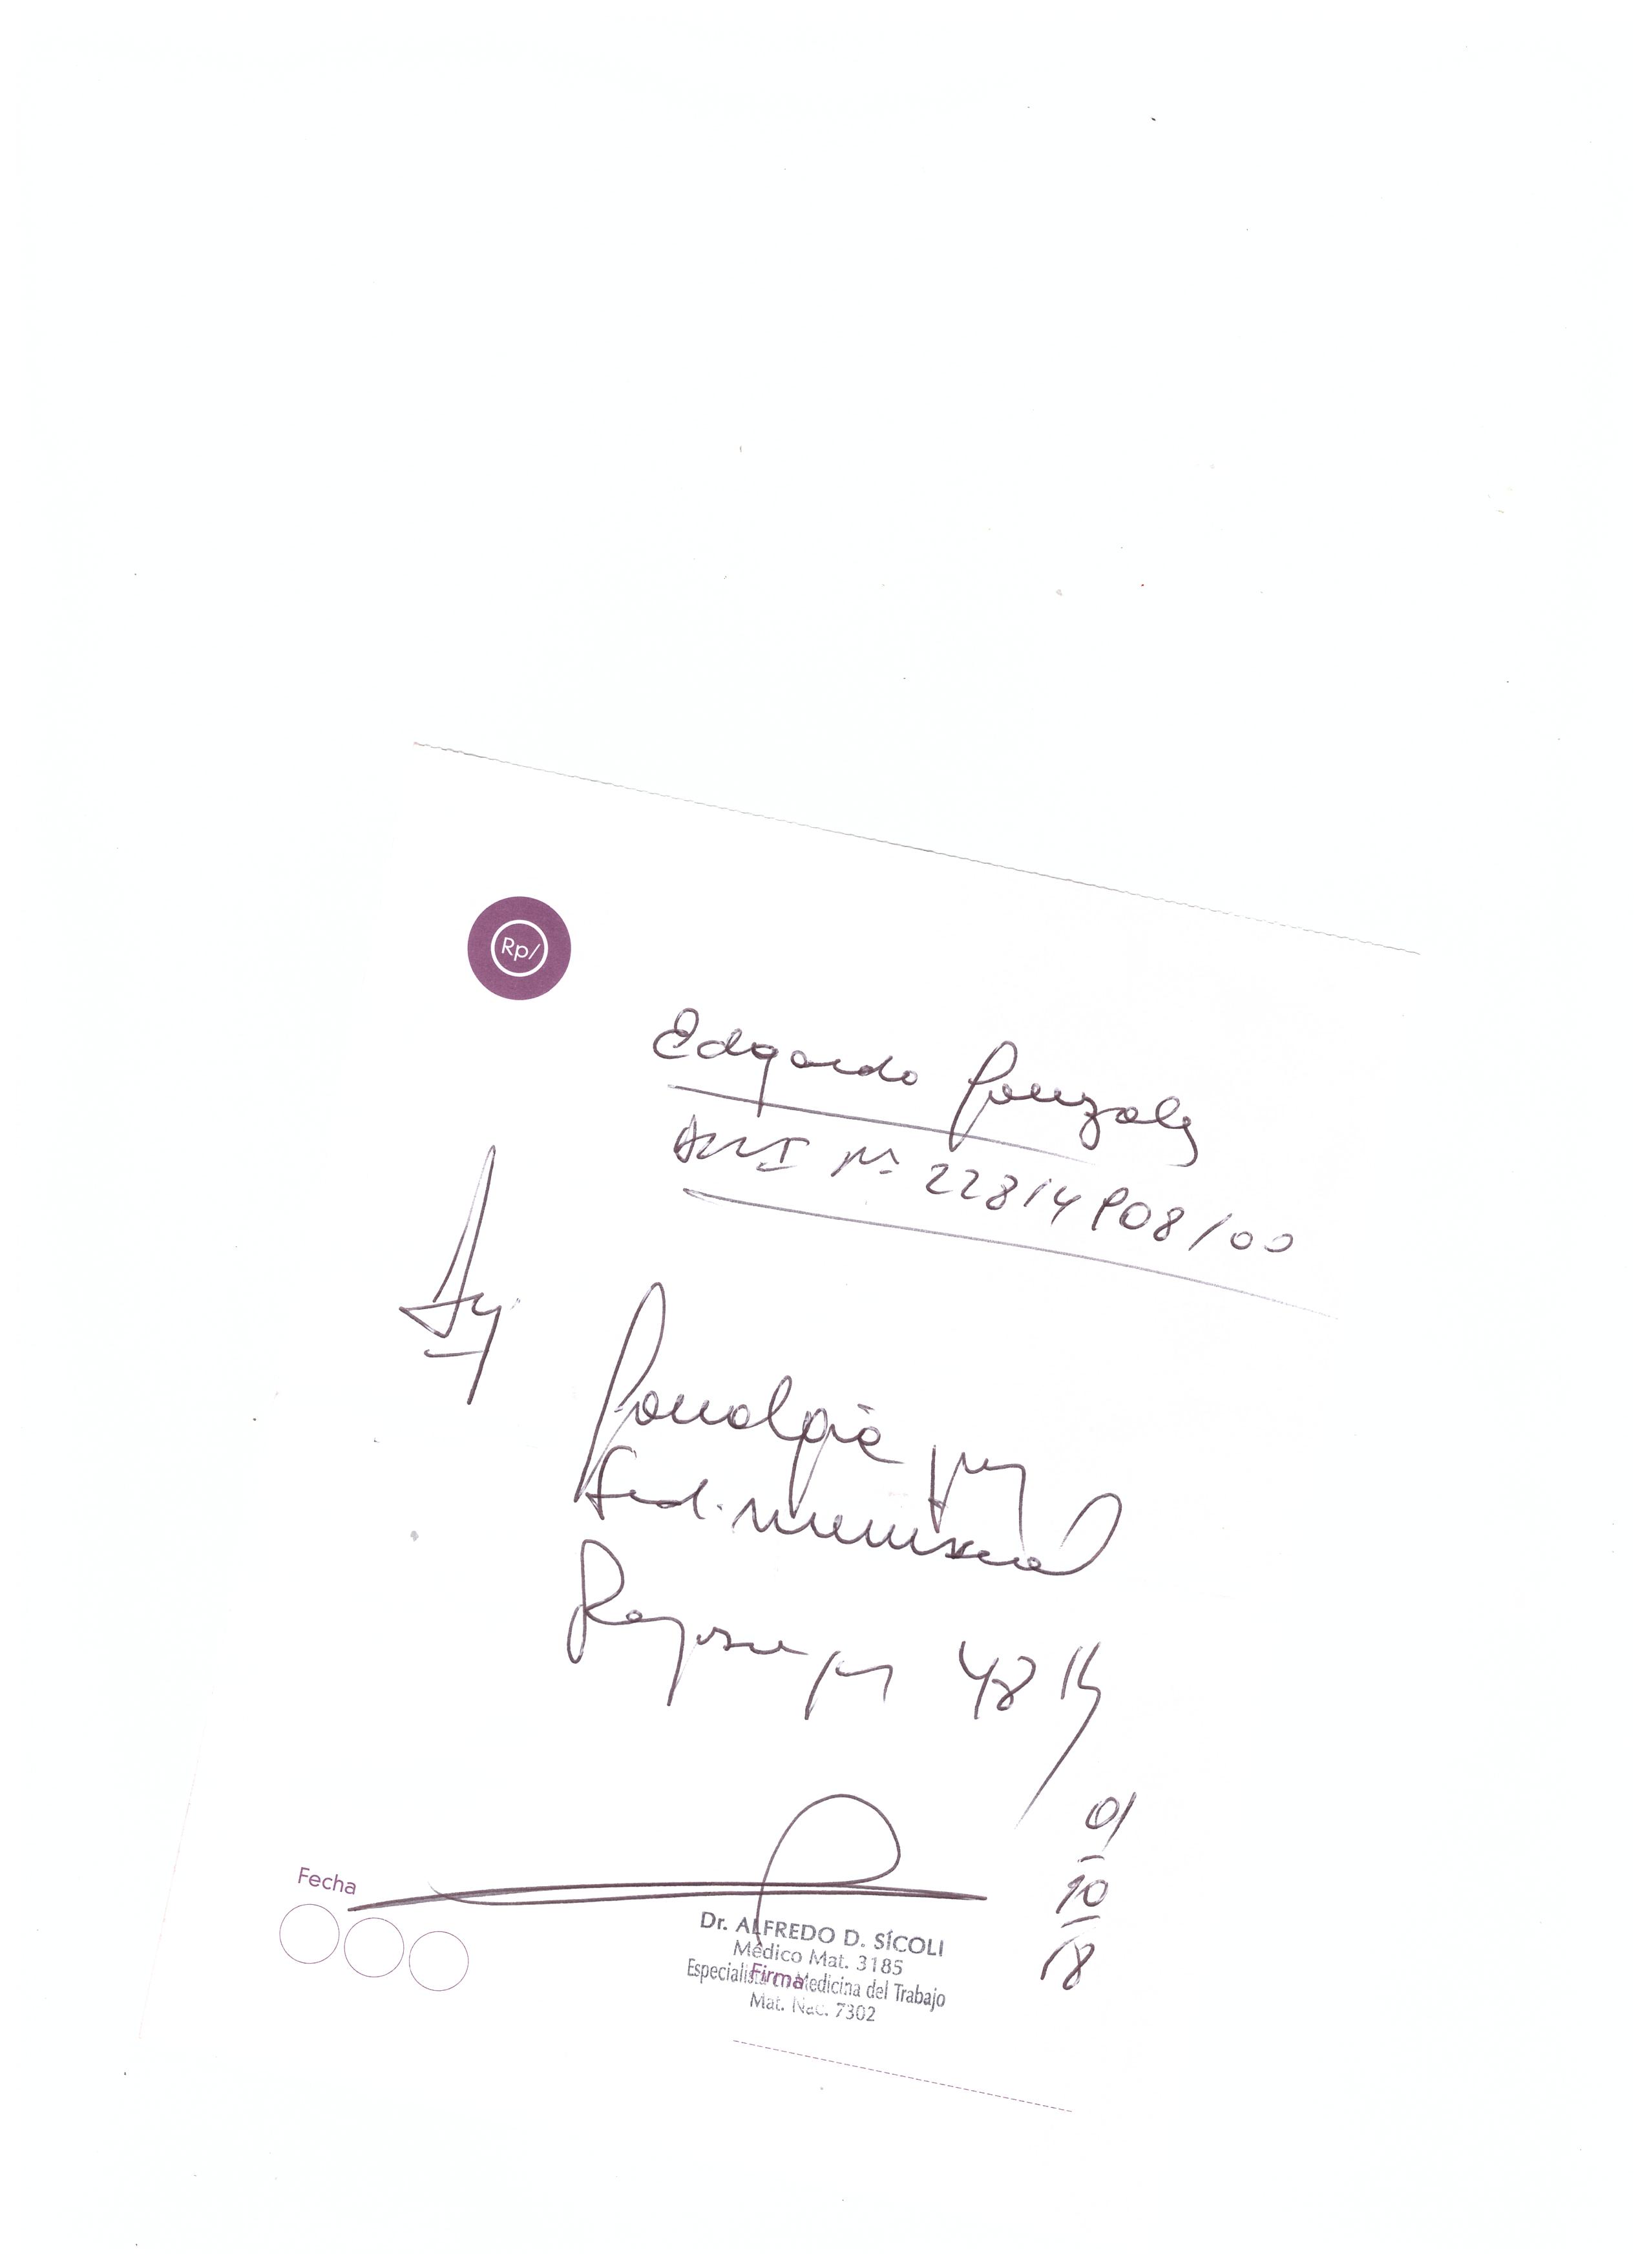 Rp/
Edgardo Gonzalez
Nº 22814908/00
Dg
Gonalgia por
Repose por 48 hs
01
10
18
Fecha
Dr. ALFREDO D. SÍCOLI
Médico Mat. 3185
Especialista en Medicina del Trabajo
Firma
Mat. Nac. 7302